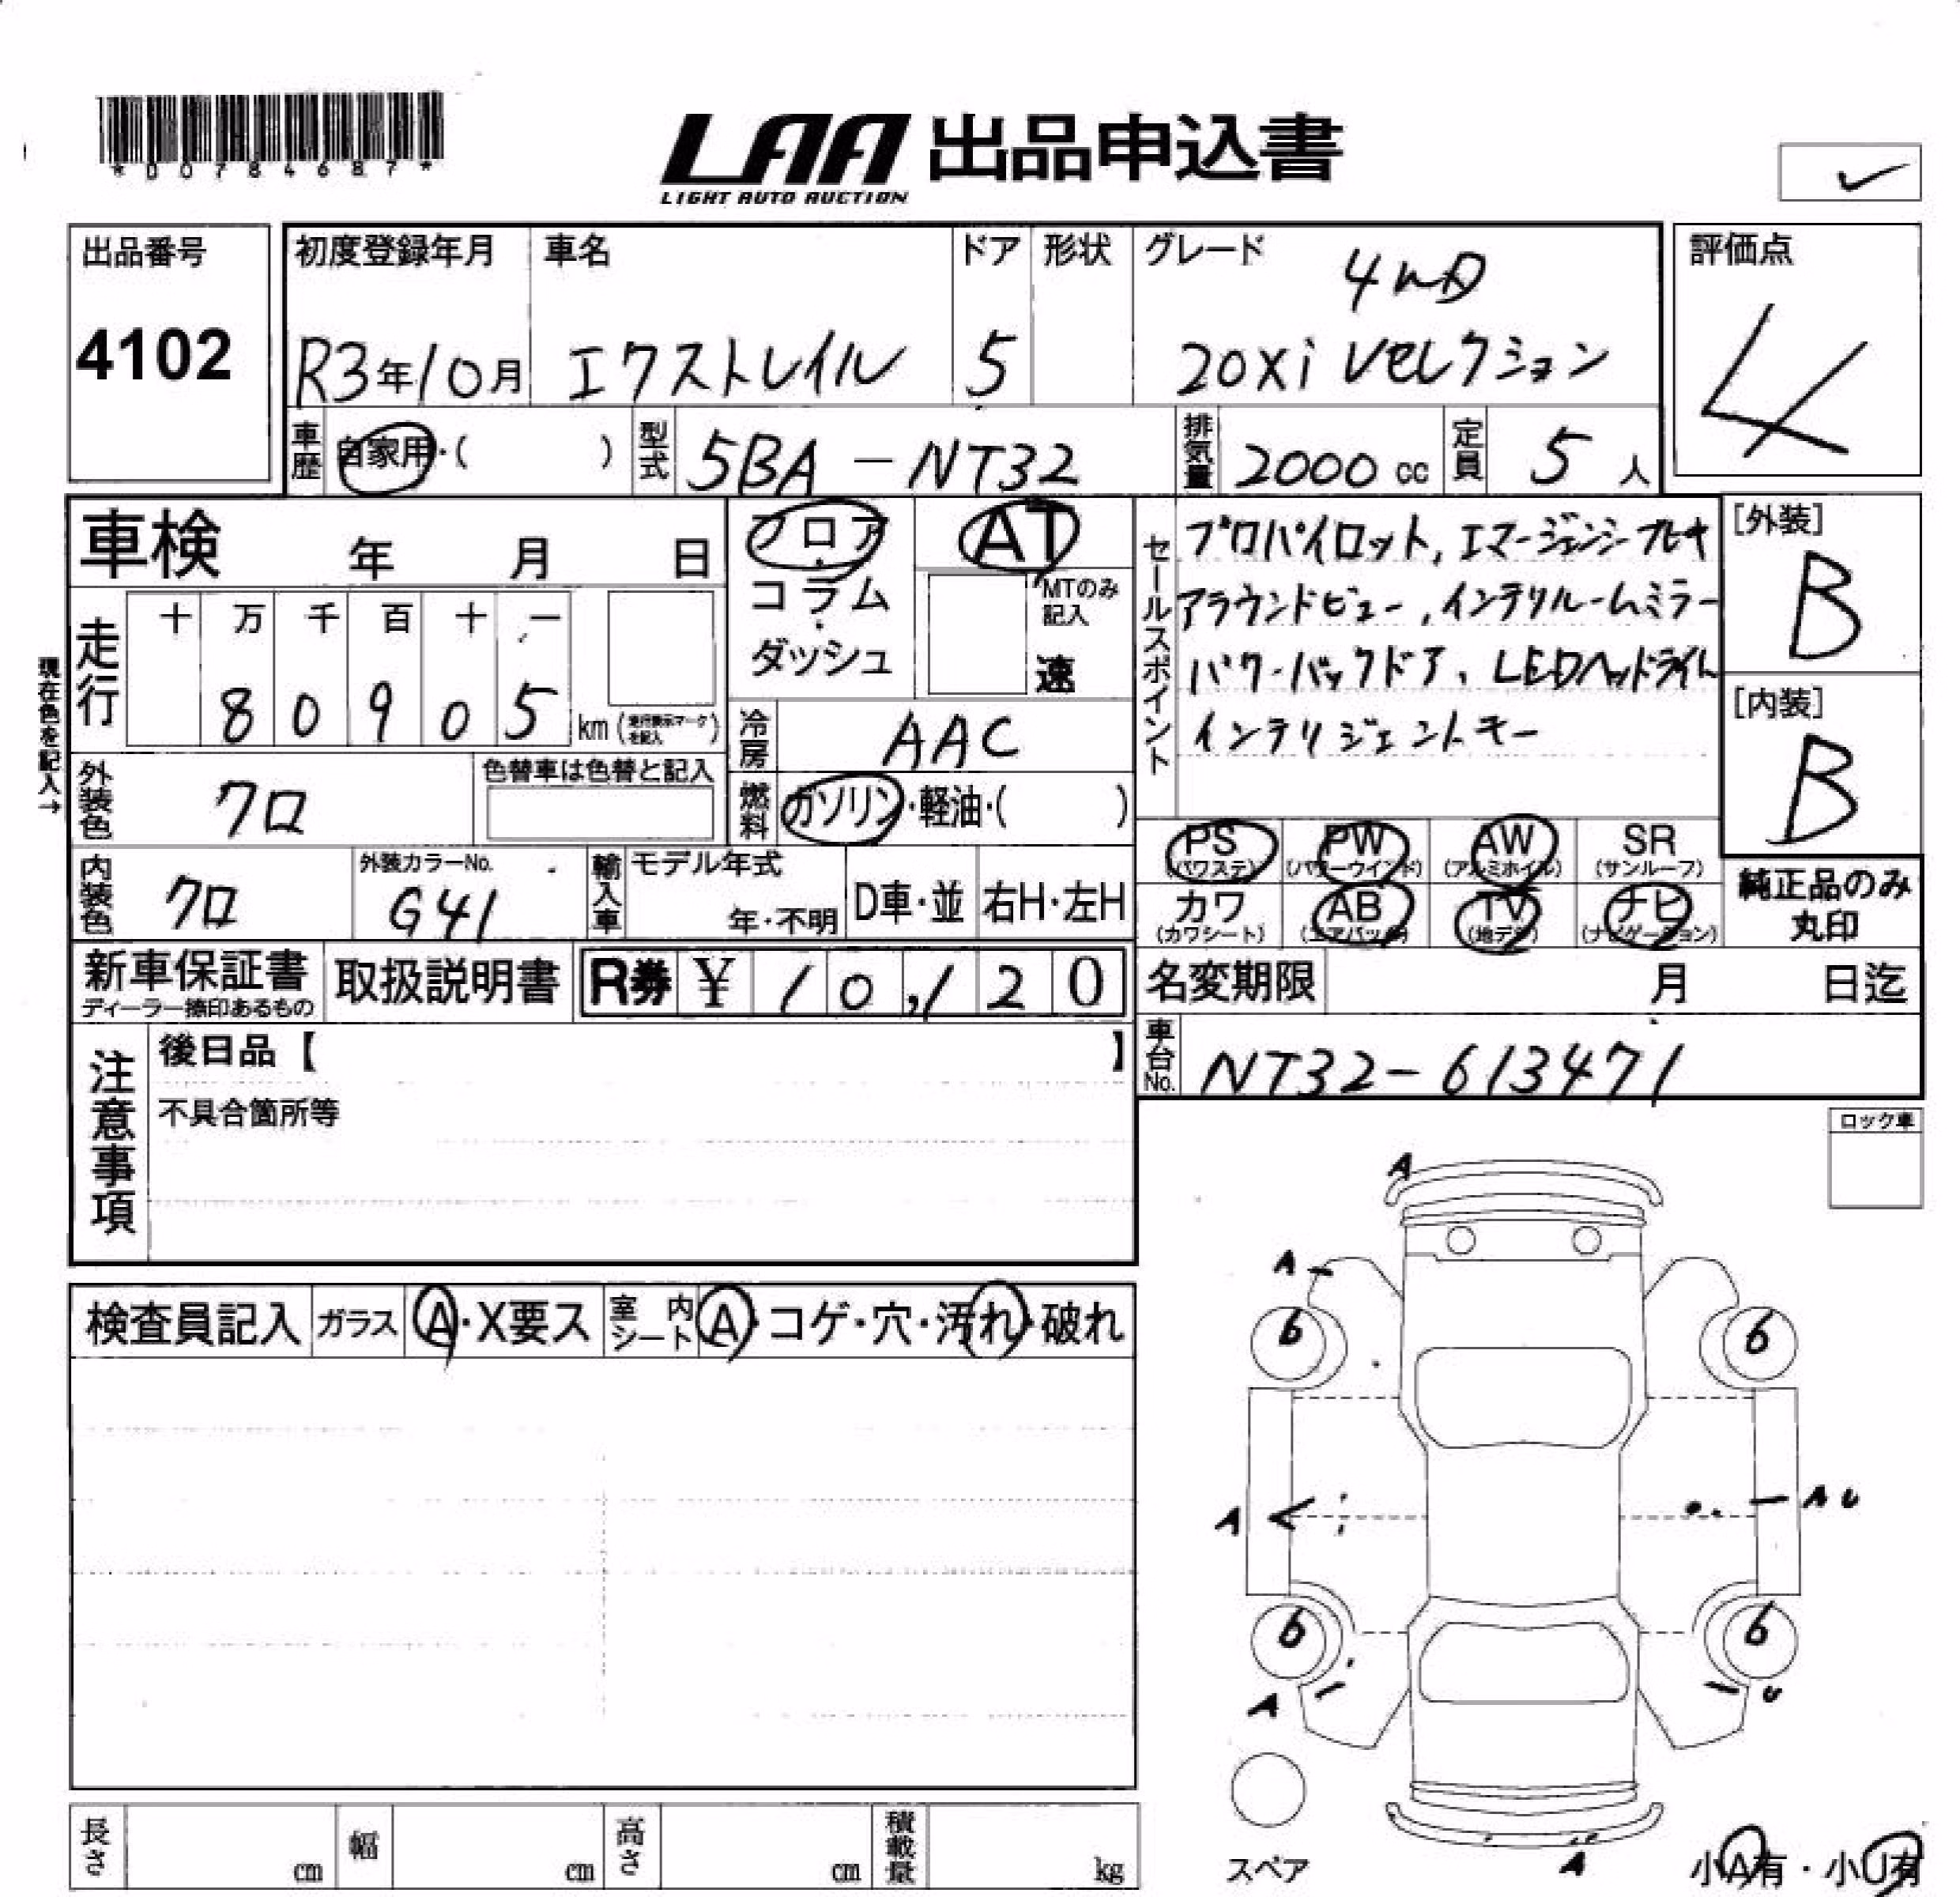 *00784687*
LAA 出品申込書
LIGHT AUTO AUCTION
出品番号
4102
初度登録年月
R3年10月
車名
エクストレイル
ドア
5
形状
グレード
4WD
20xi Vセレクション
評価点
4
車歴
自家用・( )
型式
5BA-NT32
排気量
2000 cc
定員
5 人
車検 年 月 日
現在色を記入→
走行
十 万 千 百 十 一
8 0 9 0 5 km
(走行表示マークを記入)
フロア・コラム・ダッシュ
AT
MTのみ記入
速
冷房
AAC
燃料
ガソリン・軽油・( )
外装色
クロ
色替車は色替と記入
内装色
クロ
外装カラーNo.
G41
輸入車
モデル年式
年・不明
D車・並
右H・左H
セールスポイント
プロパイロット, エマージェンシーブレーキ
アラウンドビュー, インテリルームミラー
パワーバックドア、LEDヘッドライト
インテリジェントキー
[外装]
B
[内装]
B
PS (パワステ)
PW (パワーウインド)
AW (アルミホイル)
SR (サンルーフ)
カワ (カワシート)
AB (エアバック)
TV (地デジ)
ナビ (ナビゲーション)
純正品のみ
丸印
新車保証書
ディーラー捺印あるもの
取扱説明書
R券 ¥ 10,120
名変期限 月 日迄
車台No.
NT32-613471
注意事項
後日品【 】
不具合箇所等
ロック車
検査員記入
ガラス
A・X要ス
室内シート
A・コゲ・穴・汚れ・破れ
A
A
6
6
A
A U
6
6
A
U
A
スペア
小A有・小U有
長さ cm
幅 cm
高さ cm
積載量 kg